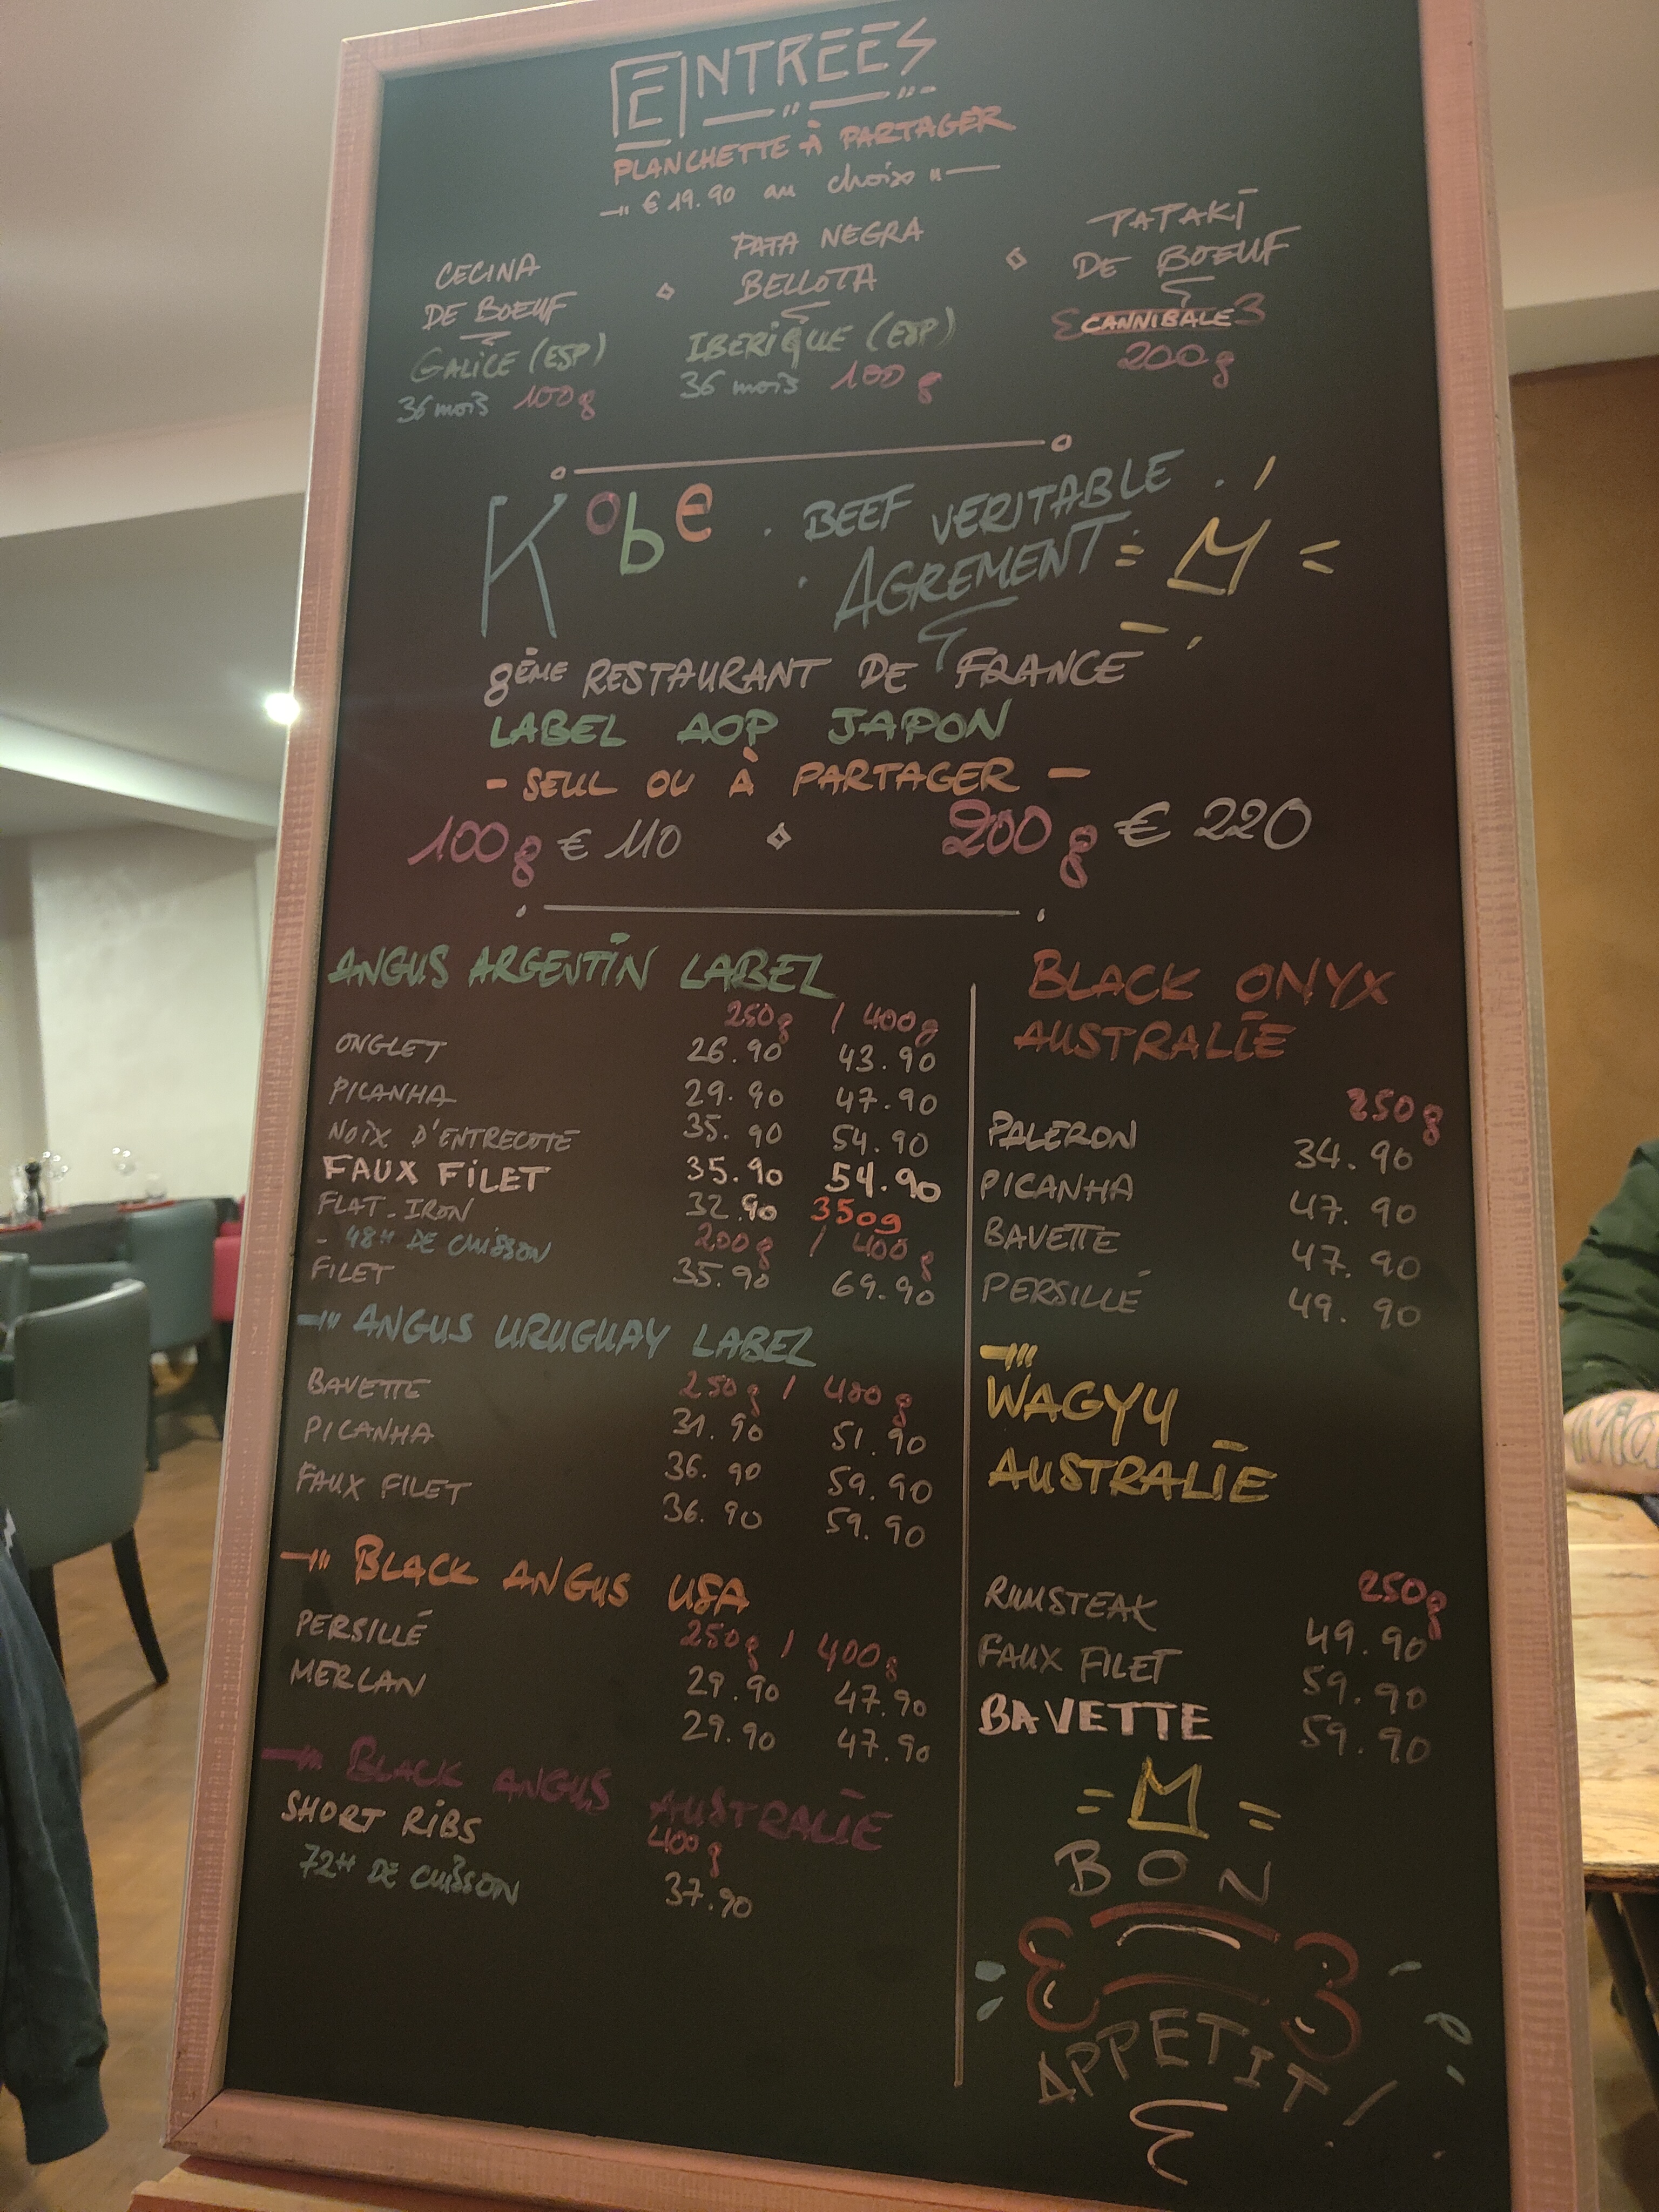 ENTREES
PLANCHETTE À PARTAGER
€ 19.90 au choix
CECINA
DE BOEUF
GALICE (ESP)
36 mois 100g
PATA NEGRA
BELLOTA
IBERIQUE (ESP)
36 mois 100g
TATAKI
DE BOEUF
CANNIBALE
200g
Kobe BEEF VERITABLE
AGREMENT
8ÈME RESTAURANT DE FRANCE
LABEL AOP JAPON
- SEUL OU À PARTAGER -
100g € 110 200g € 220
ANGUS ARGENTIN LABEL
250g / 400g
ONGLET 26.90 43.90
PICANHA 29.90 47.90
NOIX D'ENTRECOTE 35.90 54.90
FAUX FILET 35.90 54.90
FLAT-IRON 32.90 350g
- 48H DE CUISSON 200g / 400g
FILET 35.90 69.90
ANGUS URUGUAY LABEL
250g / 400g
BAVETTE 31.90 51.90
PICANHA 36.90 59.90
FAUX FILET 36.90 59.90
BLACK ANGUS USA
250g / 400g
PERSILLÉ 29.90 47.90
MERLAN 29.90 47.90
BLACK ANGUS AUSTRALIE
400g
SHORT RIBS 37.90
72H DE CUISSON
BLACK ONYX
AUSTRALIE
250g
PALERON 34.90
PICANHA 47.90
BAVETTE 47.90
PERSILLÉ 49.90
WAGYU
AUSTRALIE
250g
RUMSTEAK 49.90
FAUX FILET 59.90
BAVETTE 59.90
BON
APPETIT !